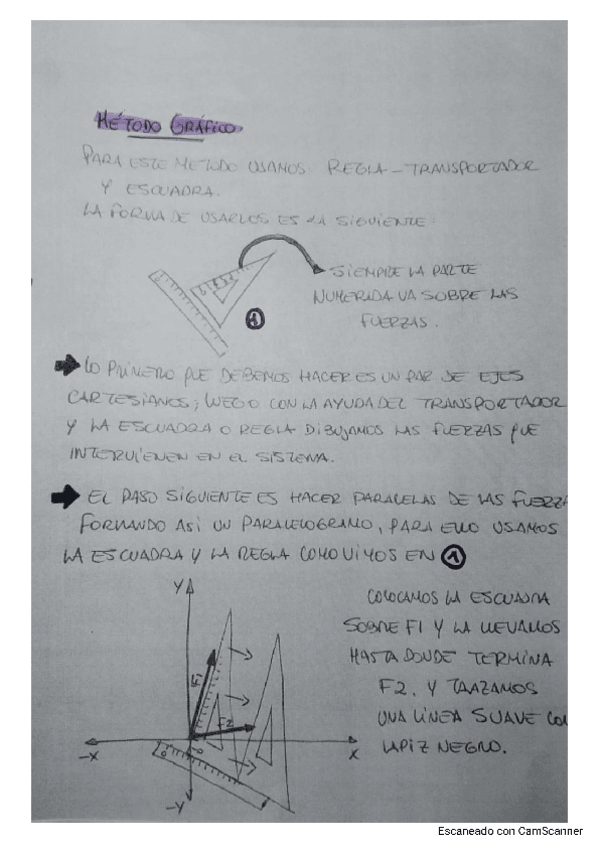 MÉTODO GRÁFICO
PARA ESTE METODO USAMOS REGLA - TRANSPORTADOR
Y ESCUADRA.
LA FORMA DE USARLOS ES LA SIGUIENTE:
SIEMPRE LA PARTE
NUMERIDA VA SOBRE LAS
FUERZAS.
1
LO PRIMERO QUE DEBEMOS HACER ES UN PAR DE EJES
CARTESIANOS, LUEGO CON LA AYUDA DEL TRANSPORTADOR
Y LA ESCUADRA O REGLA DIBUJAMOS LAS FUERZAS QUE
INTERVIENEN EN EL SISTEMA.
EL PASO SIGUIENTE ES HACER PARALELAS DE LAS FUERZA
FORMANDO ASI UN PARALELOGRAMO, PARA ELLO USAMOS
LA ESCUADRA Y LA REGLA COMO VIMOS EN 1
COLOCAMOS LA ESCUADRA
SOBRE F1 Y LA LLEVAMOS
HASTA DONDE TERMINA
F2. Y TRAZAMOS
UNA LÍNEA SUAVE CO
LAPIZ NEGRO.
Y
F1
F2
-X
X
-Y
Escaneado con CamScanner